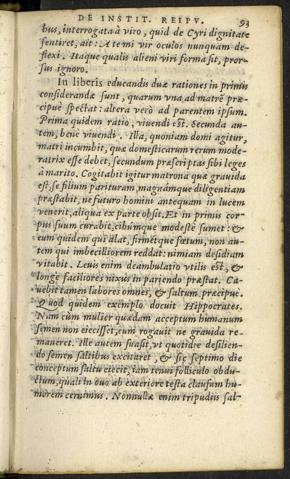 DE INSTIT. REIPV. 93
bus, interrogata à viro, quid de Cyri dignitate
sentiret, ait: A te mi vir oculos nunquam de-
flexi. Itaque qualis alieni viri forma sit, pror-
sus ignoro.
In liberis educandis duæ rationes in primis
considerandæ sunt, quarum vna, ad matrē præ-
cipuè spectat: altera verò ad parentem ipsum.
Prima quidem ratio, viuendi est. Secunda au-
tem, benè viuendi. Illa, quoniam domi agitur,
matri incumbit, quæ domesticarum rerum mode-
ratrix esse debet, secundum præscriptas sibi leges
à marito. Cogitabit igitur matrona quæ grauida
est, se filium parituram, magnámque diligentiam
præstabit, ne futuro homini antequam in lucem
venerit, aliqua ex parte obsit. Et in primis cor-
pus suum curabit, cibúmque modestè sumet: &
eum quidem qui alat, firmétque fœtum, non au-
tem qui imbecilliorem reddat: nimiam desidiam
vitabit. Leuis enim deambulatio vtilis est, &
longè faciliores nixus in pariendo præstat. Ca-
uebit tamen labores omnes, & saltum præcipuè.
Quod quidem exemplo docuit Hippocrates.
Nam cùm mulier quædam acceptum humanum
semen non eiecisset, eum rogauit ne grauida re-
maneret. Ille autem suasit, vt quotidie desilien-
do semen saltibus excitaret, & sic septimo die
conceptum saltu eiecit, iam tenui folliculo obdu-
ctum, quali in ouo ab exteriore testa clausum hu-
morem cernimus. Nonnullæ enim tripudiis sal-